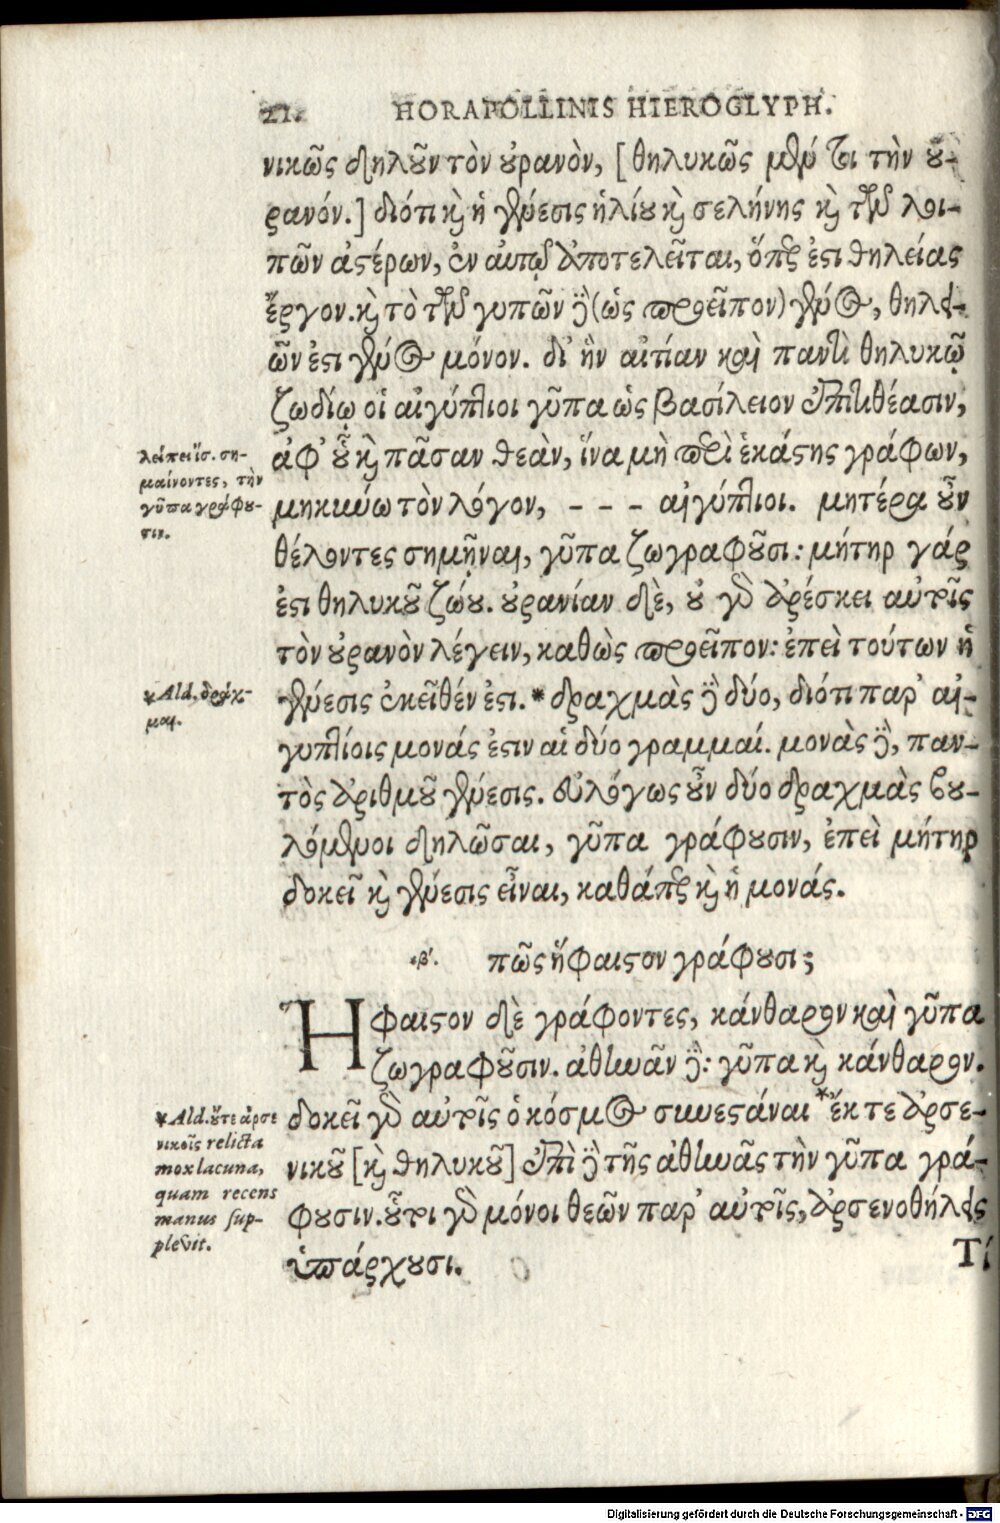 21. HORAPOLLINIS HIEROGLYPH.
νικῶς δηλοῦν τὸν οὐρανὸν, [θηλυκῶς μέν τοι τὴν οὐ-
ρανόν.] διότι καὶ ἡ γένεσις ἡλίου καὶ σελήνης καὶ τῶν λοι-
πῶν ἀστέρων, ἐν αὐτῷ ἀποτελεῖται, ὅπερ ἐστὶ θηλείας
ἔργον. καὶ τὸ τῶν γυπῶν δὲ (ὡς προεῖπον) γένος, θηλει-
ῶν ἐστι γένος μόνον. δι' ἣν αἰτίαν καὶ παντὶ θηλυκῷ
ζωδίῳ οἱ αἰγύπτιοι γῦπα ὡς βασίλειον ἐπιτιθέασιν,
ἀφ' οὗ καὶ πᾶσαν θεὰν, ἵνα μὴ περὶ ἑκάστης γράφων,
μηκύνω τὸν λόγον, - - - αἰγύπτιοι. μητέρα οὖν
θέλοντες σημῆναι, γῦπα ζωγραφοῦσι: μήτηρ γάρ
ἐστι θηλυκοῦ ζώου. οὐρανίαν δὲ, οὐ γὰρ ἀρέσκει αὐτοῖς
τὸν οὐρανὸν λέγειν, καθὼς προεῖπον: ἐπεὶ τούτων ἡ
γένεσις ἐκεῖθέν ἐστι. * δραχμὰς δὲ δύο, διότι παρ' αἰ-
γυπτίοις μονάς ἐστιν αἱ δύο γραμμαί. μονὰς δὲ, παν-
τὸς ἀριθμοῦ γένεσις. εὐλόγως οὖν δύο δραχμὰς βου-
λόμενοι δηλῶσαι, γῦπα γράφουσιν, ἐπεὶ μήτηρ
δοκεῖ καὶ γένεσις εἶναι, καθάπερ καὶ ἡ μονάς.
λείπει ἴσ. ση-
μαίνοντες, τὴν
γῦπα γράφου-
σιν.
* Ald. δράχ-
μαι.
ιβ'. πῶς ἥφαιστον γράφουσι;
Ἥφαιστον δὲ γράφοντες, κάνθαρον καὶ γῦπα
ζωγραφοῦσιν. ἀθηνᾶν δὲ: γῦπα καὶ κάνθαρον.
δοκεῖ γὰρ αὐτοῖς ὁ κόσμος συνεστάναι * ἔκ τε ἀρσε-
νικοῦ [καὶ θηλυκοῦ] ἐπὶ δὲ τῆς ἀθηνᾶς τὴν γῦπα γρά-
φουσιν. οὗτοι γὰρ μόνοι θεῶν παρ' αὐτοῖς, ἀρσενοθήλεις
ὑπάρχουσι.
* Ald. οὔτε ἀρσε
νικοῖς relicta
mox lacuna,
quam recens
manus sup-
plevit.
Τί
Digitalisierung gefördert durch die Deutsche Forschungsgemeinschaft - DFG